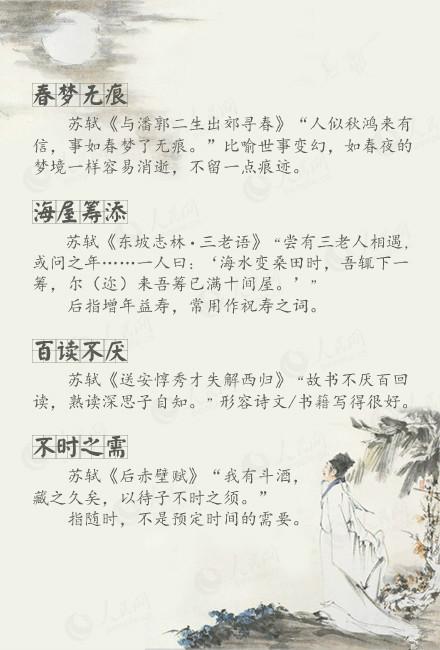 春梦无痕
苏轼《与潘郭二生出郊寻春》“人似秋鸿来有
信，事如春梦了无痕。”比喻世事变幻，如春夜的
梦境一样容易消逝，不留一点痕迹。
海屋筹添
苏轼《东坡志林·三老语》“尝有三老人相遇，
或问之年……一人曰：‘海水变桑田时，吾辄下一
筹，尔（迩）来吾筹已满十间屋。’”
后指增年益寿，常用作祝寿之词。
百读不厌
苏轼《送安惇秀才失解西归》“故书不厌百回
读，熟读深思子自知。”形容诗文/书籍写得很好。
不时之需
苏轼《后赤壁赋》“我有斗酒，
藏之久矣，以待子不时之须。”
指随时，不是预定时间的需要。